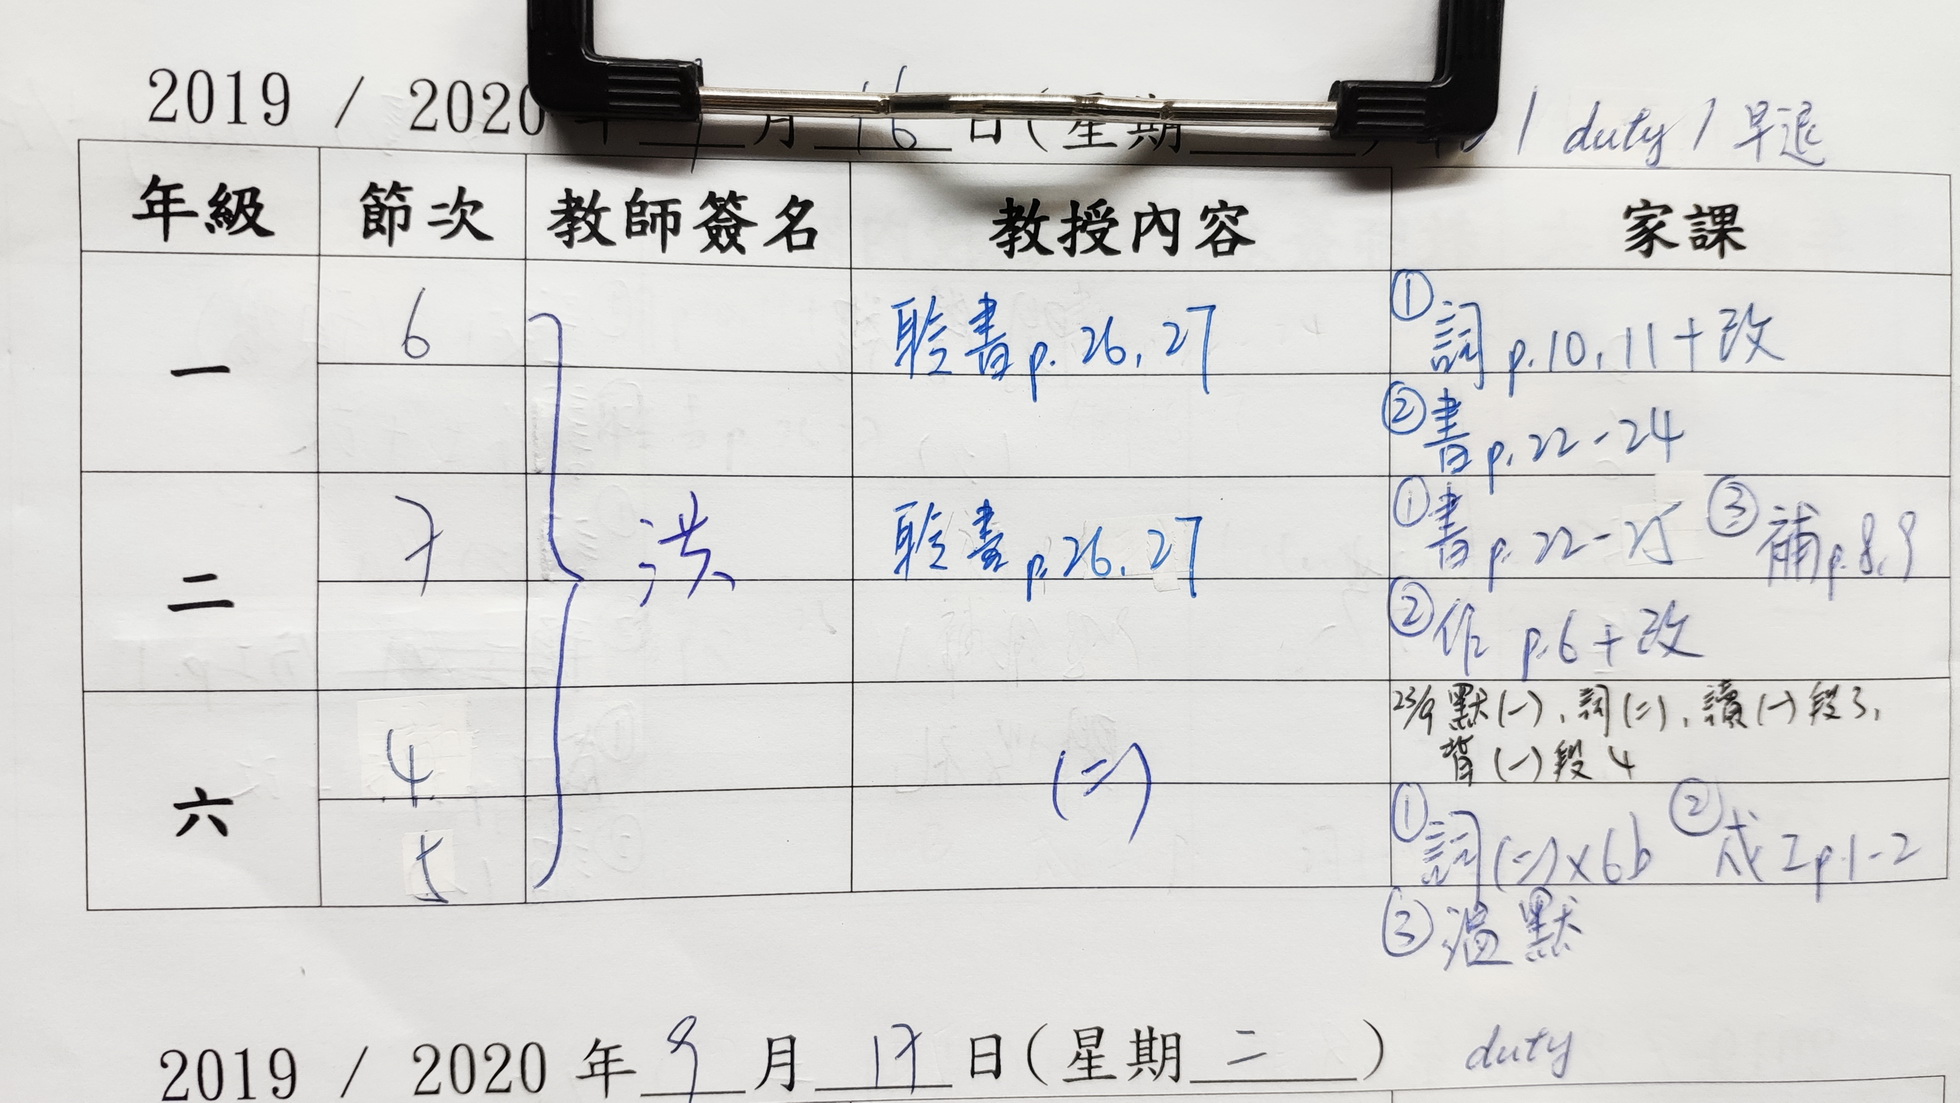 2019 / 2020 年 9 月 16 日(星期 ) / duty / 早退
年級 節次 教師簽名 教授內容 家課
一 6 聆書p.26,27 ①詞p.10,11+改
②書p.22-24
二 7 洪 聆書p.26,27 ①書p.22-25 ③補p.8,9
②作p.6+改
六 4 (二) 23/9 默(一),詞(二),讀(一)段3,
背(一)段4
5 ①詞(二)x6b ②成工p.1-2
③溫默
2019 / 2020 年 9 月 17 日(星期 二 ) duty